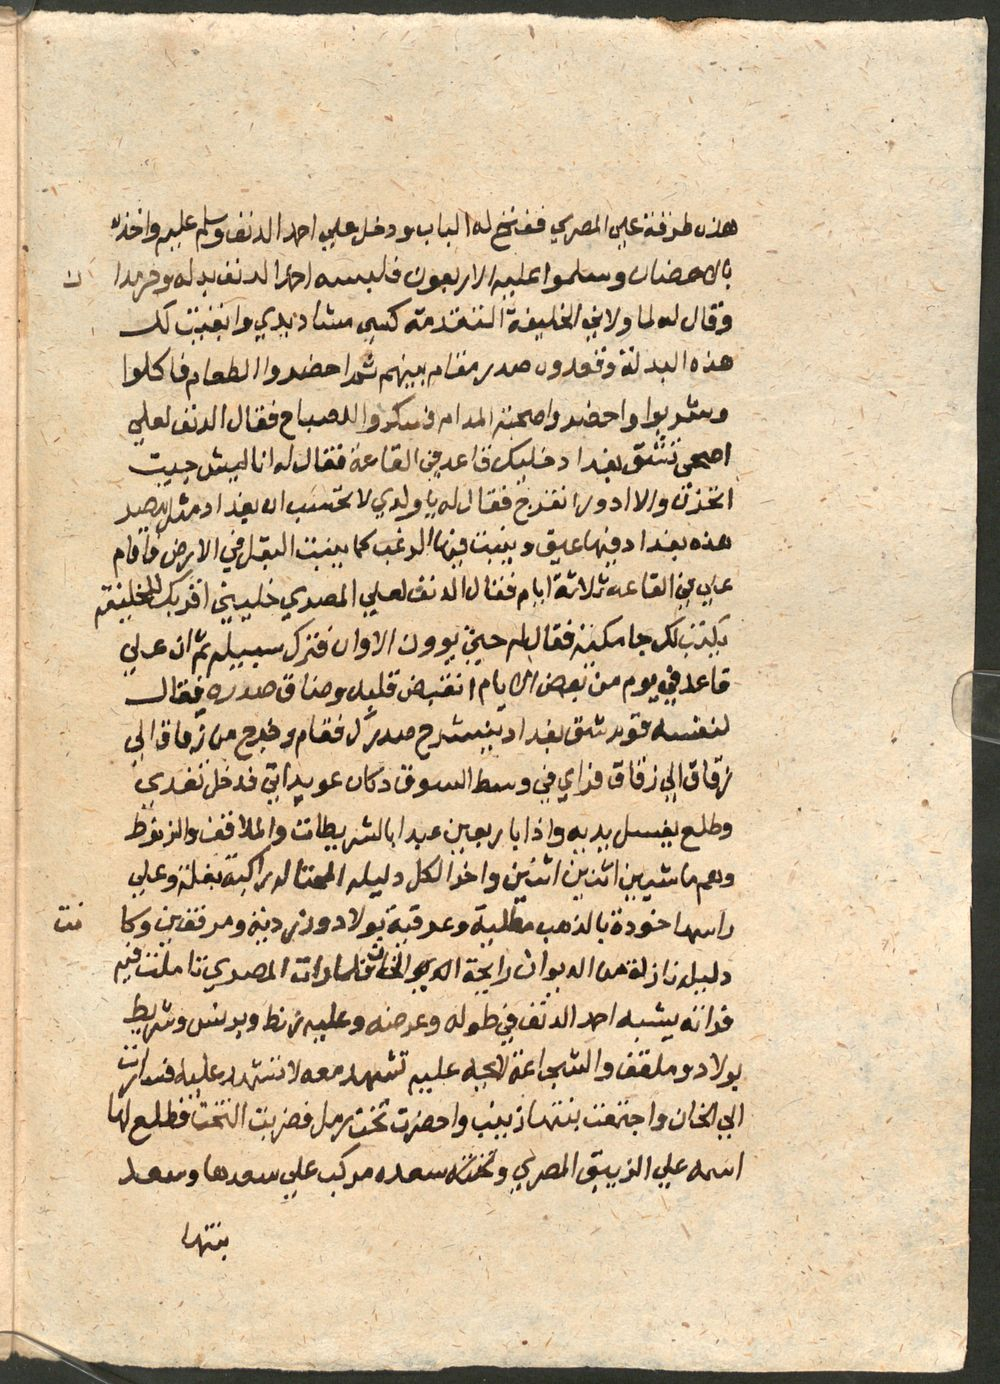 هذه طرقة علي المصري ففتح له الباب ودخل علي احمد الدنف وسلم عليه واخذه
بالاحضان وسلموا عليه الاربعون فلبسه احمد الدنف بدله وفرهدا ن
وقال له لما ولاني الخليفة التقدمة كسي مشاديدي وابقيت لك
هذه البدلة وقعدون صدر مقام بينهم ثم احضروا الطعام فاكلوا
وشربوا واحضروا صحبة المدام فسكروا للصباح فقال الدنف لعلي
اصحي تشق بغداد خليك قاعد في القاعة فقال له انا ليش جيت
اتخزن والا ادور اتفرج فقال له يا ولدي لا تحسب ان بغداد مثل مصر
هذه بغداد فيها عيق وينبت فيها الزغب كما ينبت البقل في الارض فاقام
علي في القاعه ثلاثة ايام فقال الدنف لعلي المصري خليني اقربك للخليفة
يكتب لك جامكية فقال له حين يوون الاوان فترك سبيله ثم ان علي
قاعد في يوم من بعض الايام انقبض قلبه وضاق صدره فقال
لنفسه قوم شق بغداد ينشرح صدرك فقام وخرج من زقاق الي
زقاق الي زقاق فراي في وسط السوق دكان فدخل تغدي
وطلع يغسل يديه واذا باربعين عبدا بالشريطات والملاقف والزنوط
وهم ماشيين اثنين اثنين واخر الكل دليله المحتاله راكبة بغلة وعلي
راسها خودة بالذهب مطلية وعرقية بولاد وزردية ومرفقين وكا نت
دليله نازلة من الديوان رايحة الي الخان فلما رات المصري تاملت فيه
فراته يشبه احمد الدنف في طوله وعرضه وعليه زنط وبرنس وشريط
بولاد وملقف والشجاعة لايحه عليه تشهد معه لا تشهد عليه فسارت
الي الخان واجتمعت بنتها زينب واحضرت تخت رمل فضربت التخت فطلع لها
اسمه علي الزيبق المصري وتخته سعده مركب علي سعدها وسعد
بنتها